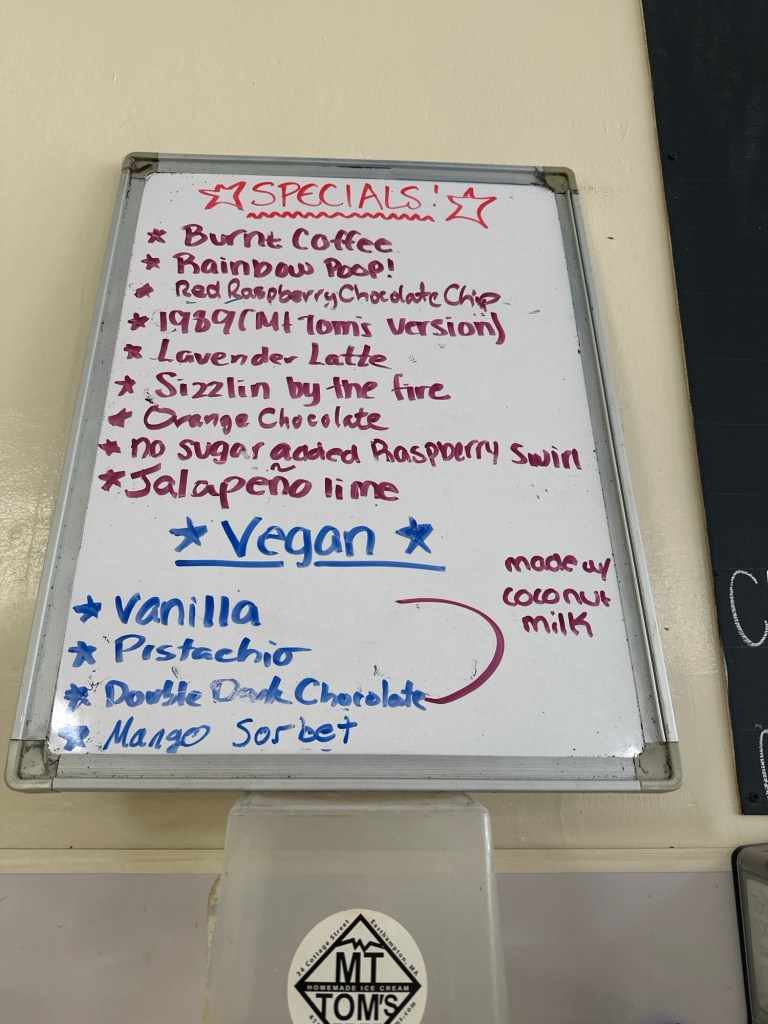 ☆ SPECIALS! ☆
* Burnt Coffee
* Rainbow Poop!
* Red Raspberry Chocolate Chip
* 1989 (Mt Tom's Version)
* Lavender Latte
* Sizzlin by the fire
* Orange Chocolate
* no sugar added Raspberry Swirl
* Jalapeño lime
* Vegan *
* Vanilla
* Pistachio
* Double Dark Chocolate
* Mango Sorbet
made w/
coconut
milk
34 Cottage Street Easthampton, MA
MT
HOMEMADE ICE CREAM
TOM'S